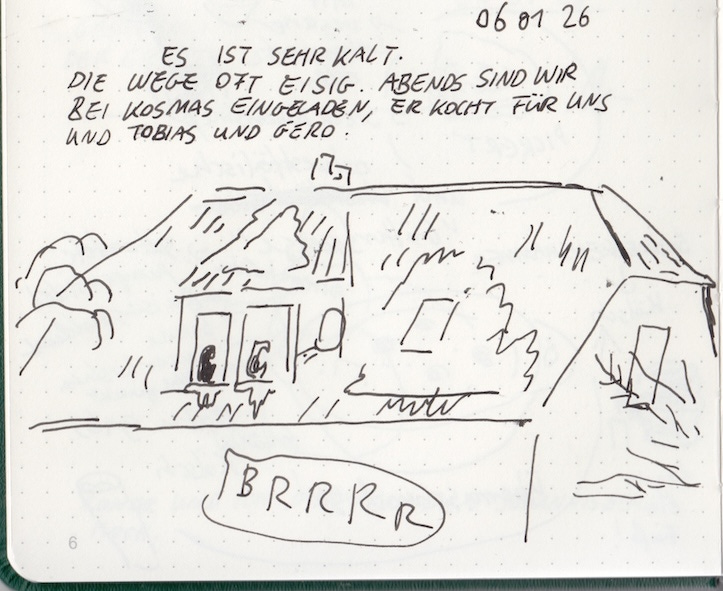 06 01 26
ES IST SEHR KALT.
DIE WEGE OFT EISIG. ABENDS SIND WIR
BEI KOSMAS EINGELADEN, ER KOCHT FÜR UNS
UND TOBIAS UND GERO.
BRRRR
6